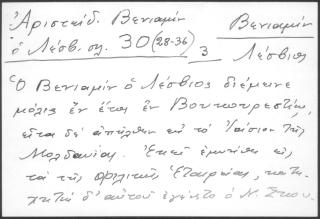 Ἀριστείδ. Βενιαμίν
ὁ Λέσβ. σελ. 30 (28-36)
3
Βενιαμίν
Λέσβιος
Ὁ Βενιαμίν ὁ Λέσβιος διέμεινε
μόλις ἕν ἔτος ἐν Βουκουρεστίῳ,
εἶτα δέ ἀπῆλθεν εἰς τό Ἰάσιον τῆς
Μολδαυίας. Ἐκεῖ ἐμυήθη εἰς
τά τῆς Φιλικῆς Ἑταιρείας, κατη-
χητής δ' αὐτοῦ ἐγένετο ὁ Ν. Σκου-